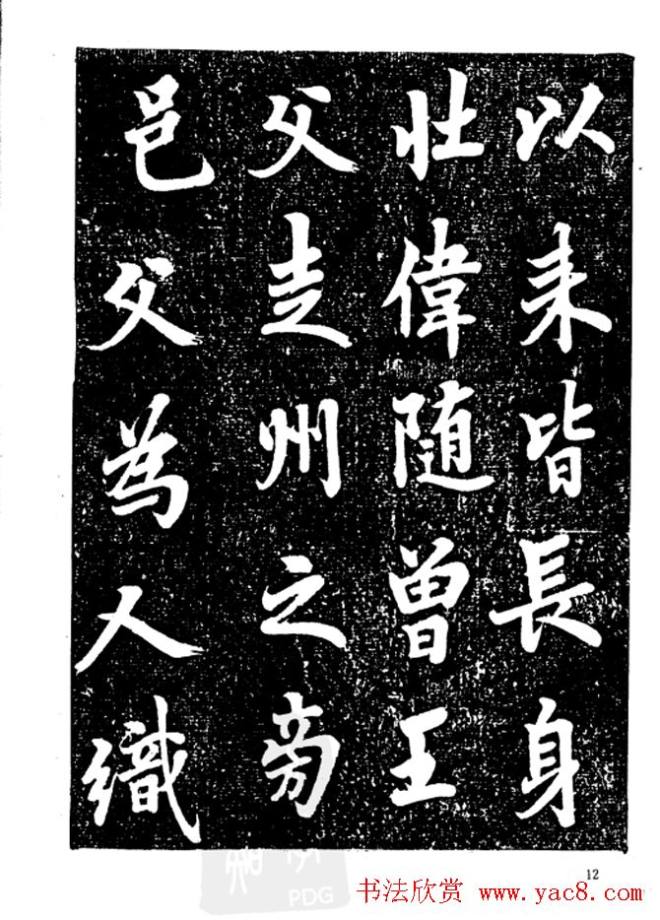 以来皆長身
壮偉随曾王
父走州之旁
邑父為人織
12
书法欣赏 www.yac8.com
PDG